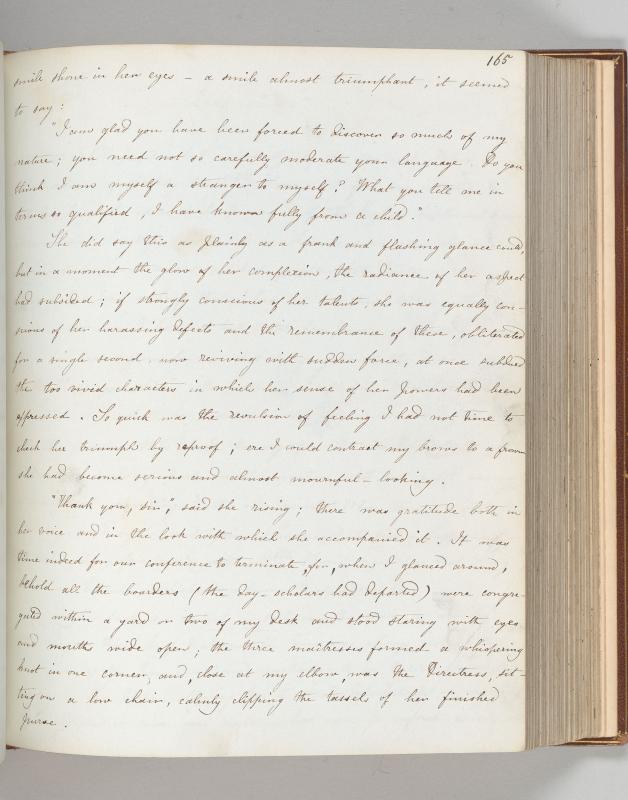 165
smile shone in her eyes – a smile almost triumphant, it seemed
to say:
"I am glad you have been forced to discover so much of my
nature; you need not so carefully moderate your language. Do you
think I am myself a stranger to myself? What you tell me in
terms so qualified, I have known fully from a child."
She did say this as plainly as a frank and flashing glance could,
but in a moment the glow of her complexion, the radiance of her aspect
had subsided; if strongly conscious of her talents, she was equally con-
scious of her harassing defects and the remembrance of these, obliterated
for a single second, now reviving with sudden force, at once subdued
the too vivid characters in which her sense of her powers had been
expressed. So quick was the revulsion of feeling I had not time to
check her triumph by reproof; ere I could contract my brows to a frown
she had become serious and almost mournful-looking.
"Thank you, sir", said she rising; there was gratitude both in
her voice and in the look with which she accompanied it. It was
time indeed for our conference to terminate, for, when I glanced around,
behold all the boarders (the day-scholars had departed) were congre-
gated within a yard or two of my desk and stood staring with eyes
and mouths wide open; the three maîtresses formed a whispering
knot in one corner, and, close at my elbow, was the Directress, sit-
ting on a low chair, calmly clipping the tassels of her finished
purse.